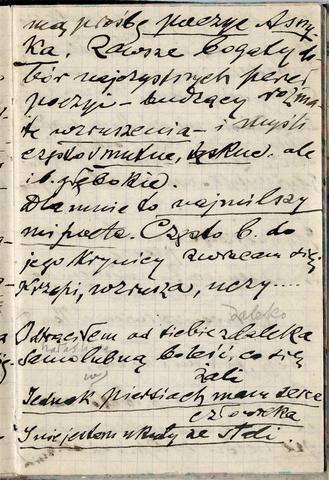 mą prośbę poezye Asny-
ka. Zawsze bogaty do-
bór najczystszych pereł
poezyi – budzący rozma-
te wzruszenia – i myśli
często smutne, tęskne. ale
i b. głębokie.
Dla mnie to najmilszy
mi poeta. Często b. do
jego skrynicy zwracam się.
Krzepi, wzrusza, uczy....
daleko
Odrzuciłem od siebie zdaleka
Samolubną boleść, co się
żali
Jednak w piersiach mam serce
człowieka
I nie jestem wykuty ze stali.